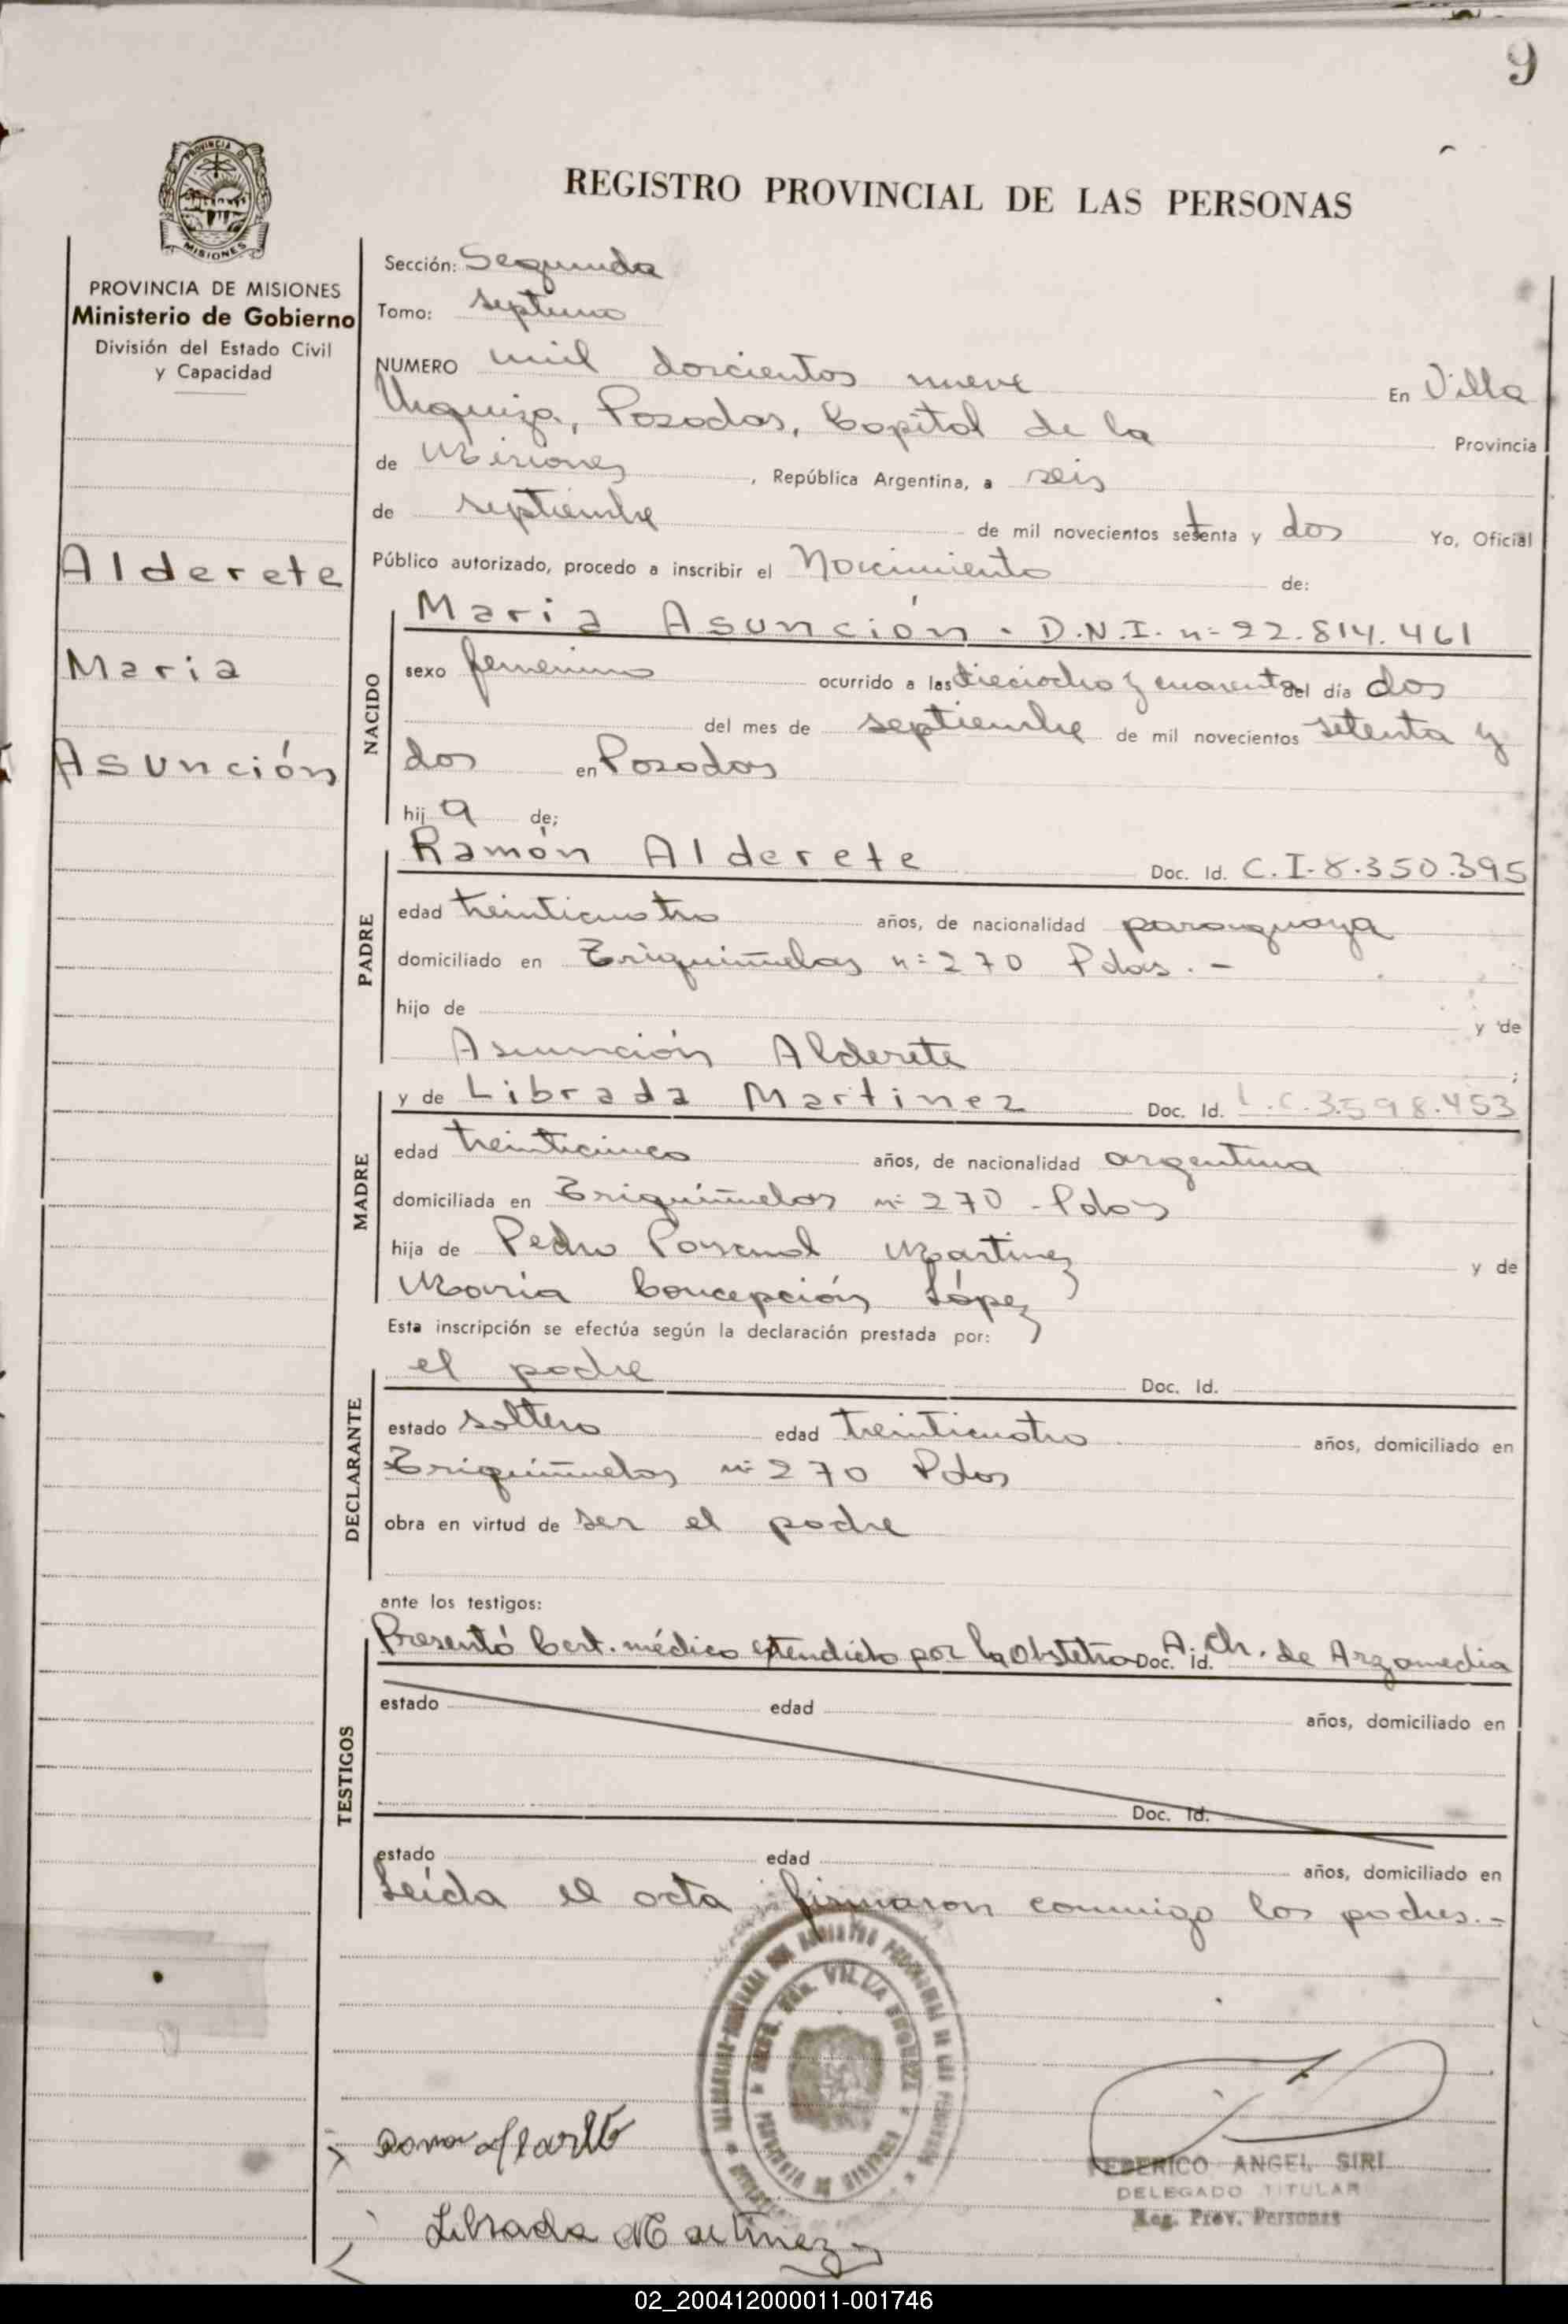 9
REGISTRO PROVINCIAL DE LAS PERSONAS
PROVINCIA DE
MISIONES
PROVINCIA DE MISIONES
Ministerio de Gobierno
División del Estado Civil
y Capacidad
Alderete
Maria
Asunción
Sección: Segunda
Tomo: septimo
NUMERO mil doscientos nueve En Villa
Urquiza, Posadas, Capital de la Provincia
de Misiones, República Argentina, a seis
de septiembre de mil novecientos setenta y dos Yo, Oficial
Público autorizado, procedo a inscribir el Nacimiento de:
NACIDO
Maria Asunción - D.N.I. nº 22.814.461
sexo femenino ocurrido a las dieciocho y cuarenta del día dos
del mes de septiembre de mil novecientos setenta y
dos en Posadas
hij a de;
PADRE
Ramón Alderete Doc. Id. C.I. 8.350.395
edad treinticuatro años, de nacionalidad paraguaya
domiciliado en nº 270 Pdas. -
hijo de y de
Asunción Alderete ;
MADRE
y de Librada Martinez Doc. Id. L.C. 3.598.453
edad treinticinco años, de nacionalidad argentina
domiciliada en nº 270 - Pdas
hija de Pedro Pascual Martinez y de
María Concepción López
Esta inscripción se efectúa según la declaración prestada por:
DECLARANTE
el padre Doc. Id.
estado soltero edad treinticuatro años, domiciliado en
nº 270 Pdas
obra en virtud de ser el padre
ante los testigos:
TESTIGOS
Presentó Cert. médico extendido por la Obstetra Doc. Id. A. Ch. de Argamedia
estado edad años, domiciliado en
Doc. Id.
estado edad años, domiciliado en
Leída el acta firmaron conmigo los padres.-
Librada Martinez
FEDERICO ANGEL SIRI
DELEGADO TITULAR
Reg. Prov. Personas
02_200412000011-001746